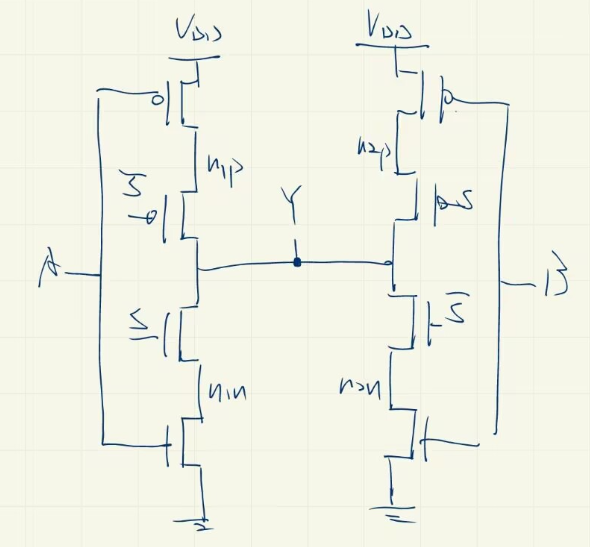 VDD VDD
n1p
n2p
S̅
S
Y
A
B
S
S̅
n1n
n2n